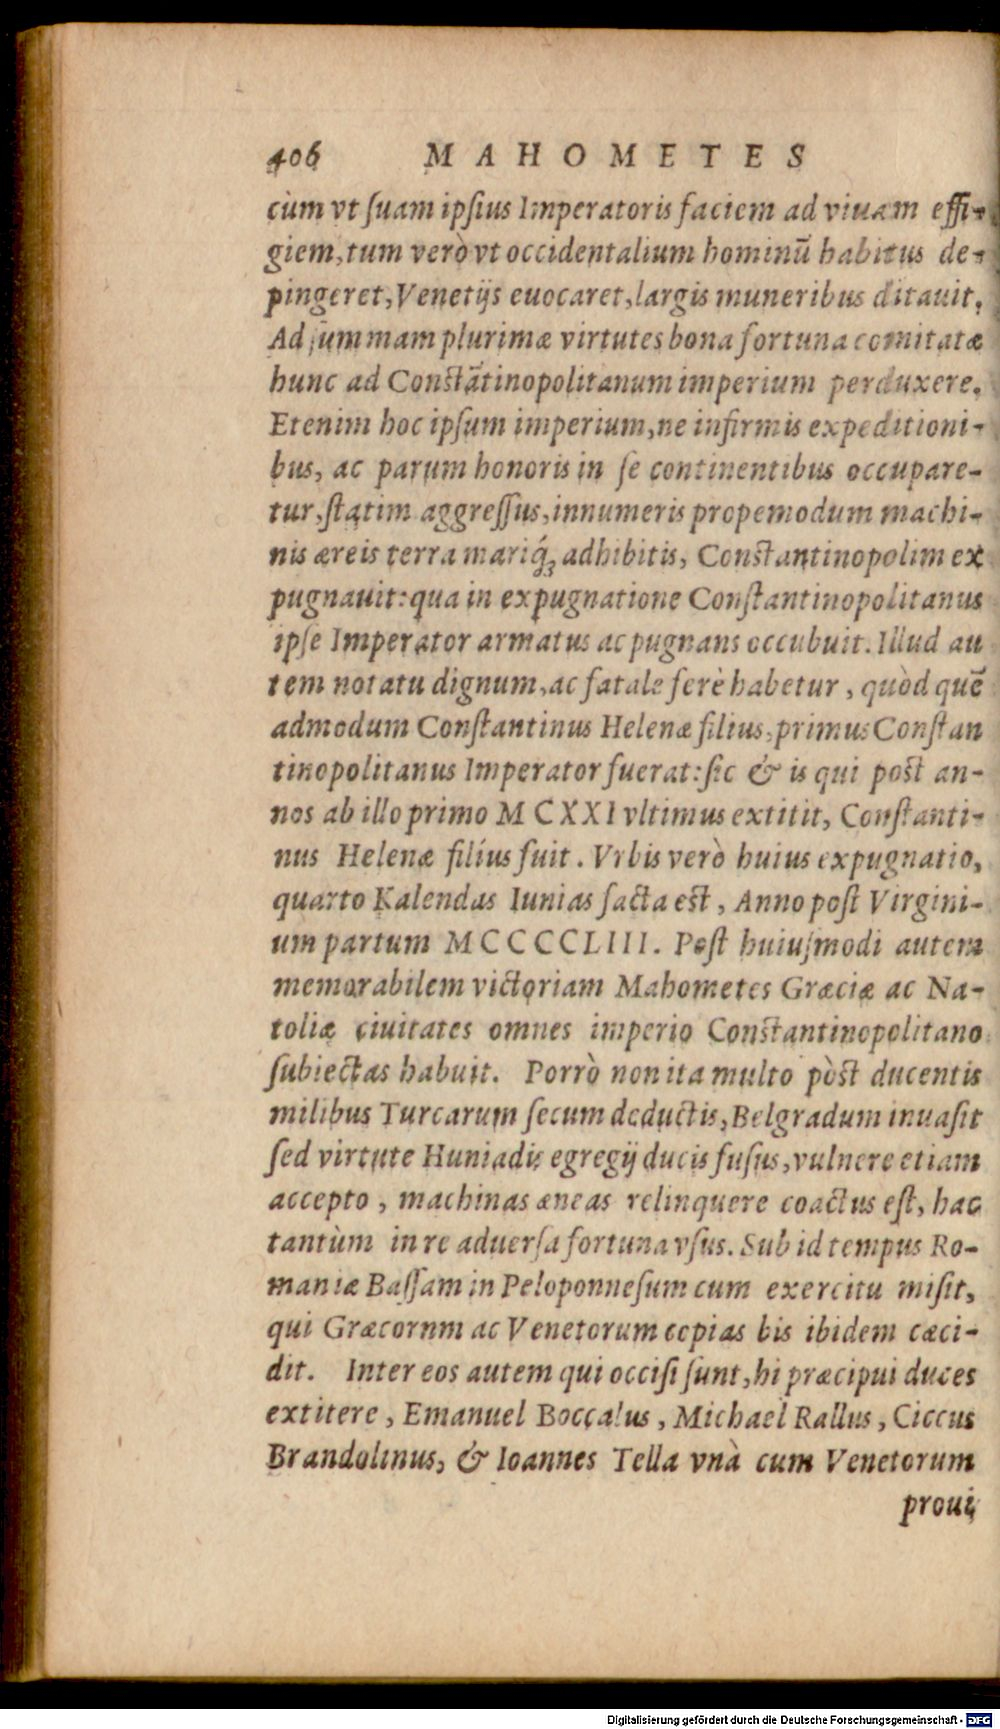 406 MAHOMETES
cùm vt ſuam ipſius Imperatoris faciem ad viuam effi-
giem, tum verò vt occidentalium hominū habitus de-
pingeret, Venetijs euocaret, largis muneribus ditauit.
Ad ſummam plurimæ virtutes bona fortuna comitatæ
hunc ad Conſtātinopolitanum imperium perduxere.
Etenim hoc ipſum imperium, ne infirmis expeditioni-
bus, ac parum honoris in ſe continentibus occupare-
tur, ſtatim aggreſſus, innumeris propemodum machi-
nis æreis terra mariq́ꝫ adhibitis, Conſtantinopolim ex
pugnauit: qua in expugnatione Conſtantinopolitanus
ipſe Imperator armatus ac pugnans occubuit. Illud au
tem notatu dignum, ac fatale ferè habetur, quòd quē
admodum Conſtantinus Helenæ filius, primus Conſtan
tinopolitanus Imperator fuerat: ſic & is qui poſt an-
nos ab illo primo MCXXI vltimus extitit, Conſtanti-
nus Helenæ filius fuit. Vrbis verò huius expugnatio,
quarto Kalendas Iunias facta eſt, Anno poſt Virgini-
um partum MCCCCLIII. Poſt huiuſmodi autem
memorabilem victoriam Mahometes Græciæ ac Na-
toliæ ciuitates omnes imperio Conſtantinopolitano
ſubiectas habuit. Porrò non ita multo pòſt ducentis
milibus Turcarum ſecum deductis, Belgradum inuaſit
ſed virtute Huniadis egregij ducis fuſus, vulnere etiam
accepto, machinas æneas relinquere coactus eſt, hac
tantùm in re aduerſa fortuna vſus. Sub id tempus Ro-
maniæ Baſſam in Peloponneſum cum exercitu miſit,
qui Græcornm ac Venetorum copias bis ibidem cæci-
dit. Inter eos autem qui occiſi ſunt, hi præcipui duces
extitere, Emanuel Boccalus, Michael Rallus, Ciccus
Brandolinus, & Ioannes Tella vnà cum Venetorum
proui
Digitalisierung gefördert durch die Deutsche Forschungsgemeinschaft - DFG